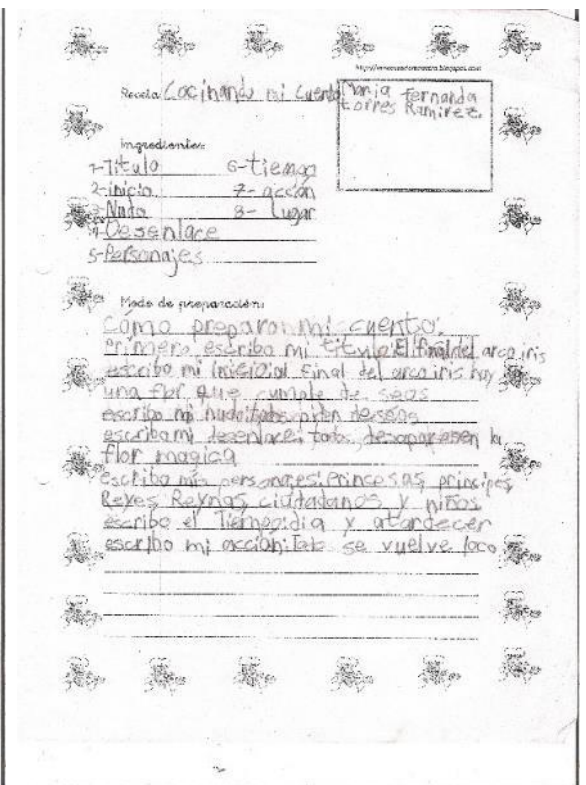 Receta: Cocinando mi cuento
Maria Fernanda
torres Ramirez.
Ingredientes:
1-Titulo 6-tiempo
2-inicio 7-acción
3-Nudo 8- lugar
4-Desenlace
5-Personajes
Modo de preparación:
Como preparon mi cuento:
Primero escribo mi titulo: El final del arco iris
escribo mi inicio: al final del arco iris hay
una flor que cumple de seos
escribo mi nudo: todos piden deseos
escribo mi desenlace: todos desaparesen la
flor magica
escribo mis personajes: Princesas, principes,
Reyes, Reynas, ciudadanos y niños
escribo el Tiempo: dia y atardecer
escribo mi acción: Todo se vuelve loco